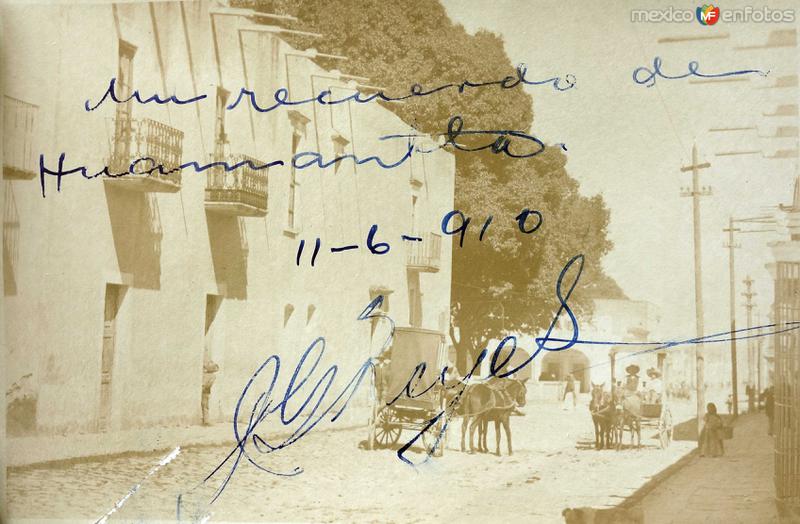 mexico enfotos
Mi recuerdo de
Huamantla.
11-6-910
Reyes